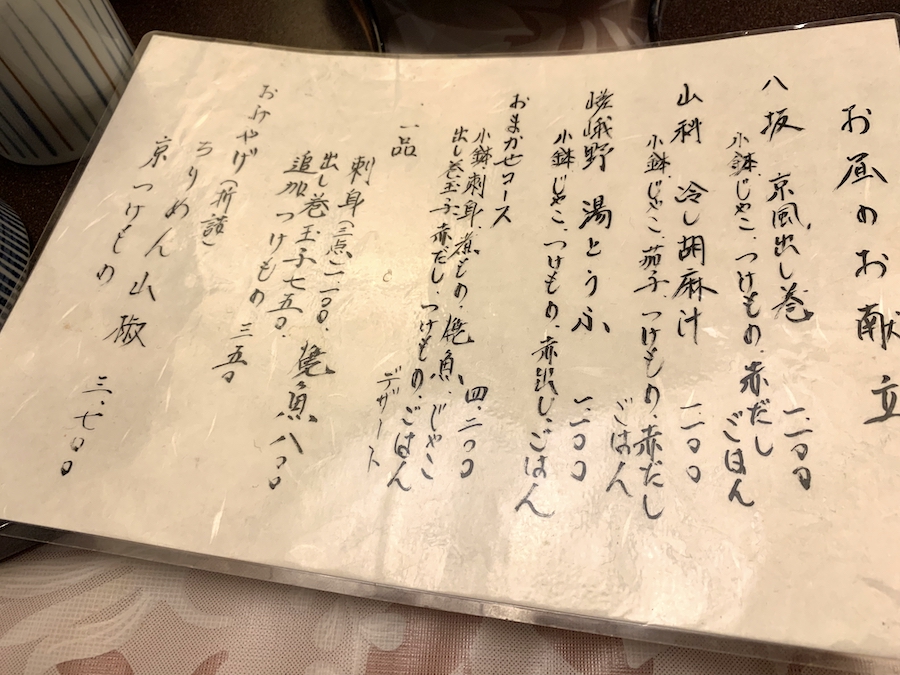 お昼のお献立
八坂 京風出し巻 一、二〇〇
小鉢、じゃこ、つけもの、赤だし
ごはん
山科 冷し胡麻汁 一、二〇〇
小鉢、じゃこ、茄子、つけもの、赤だし
ごはん
嵯峨野 湯とうふ 一、二〇〇
小鉢、じゃこ、つけもの、赤出し、ごはん
おまかせコース 四、二〇〇
小鉢、刺身、煮もの、焼魚、じゃこ
出し巻玉子、赤だし、つけもの、ごはん
デザート
一品
刺身(三点)二、二〇〇、焼魚八〇〇
出し巻玉子七五〇、
追加つけもの 三五〇
おみやげ(折詰)
ちりめん山椒
京つけもの 三、七〇〇